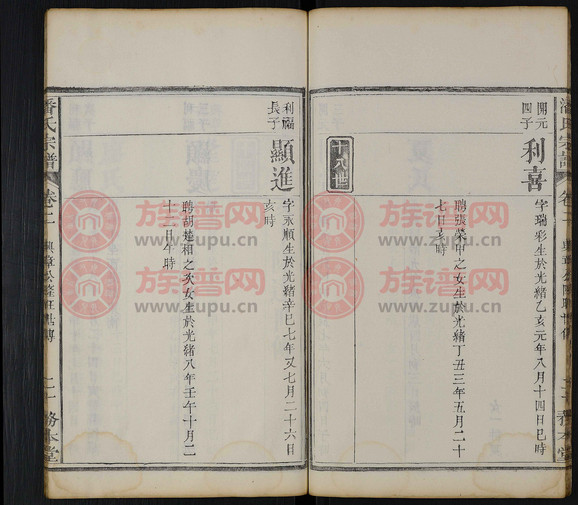 潘氏宗譜
卷二
開元
四子
利喜
字瑞彩生於光緒乙亥元年八月十四日巳時
聘張榮中之女生於光緒丁丑三年五月二十
七日亥時
十八世
利福
長子
顯進
字永順生於光緒辛巳七年又七月二十六日
亥時
聘胡楚相之次女生於光緒八年壬午十月二
十二日午時
潘氏宗譜
卷二
務本堂
族谱网
www.zupu.cn
族谱网
www.zupu.cn
族谱网
www.zupu.cn
族谱网
www.zupu.cn